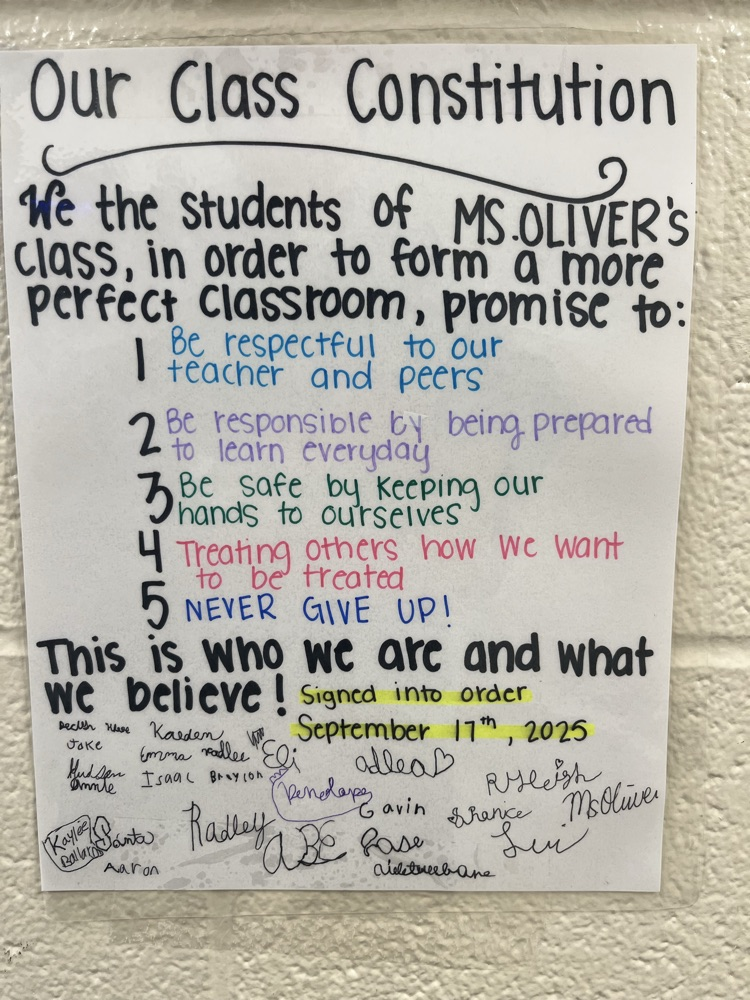 Our Class Constitution
We the students of MS.OLIVER's
class, in order to form a more
perfect classroom, promise to:
1 Be respectful to our
teacher and peers
2 Be responsible by being prepared
to learn everyday
3 Be safe by keeping our
hands to ourselves
4 Treating others how we want
to be treated
5 NEVER GIVE UP!
This is who we are and what
we believe! Signed into order
September 17th, 2025
Kaeden
Jake
Emma
Eli
adlea
Hudson
Annie
Isaac
Braylon
Penelope
Ryleigh
Gavin
Ms Oliver
Radley
Kaylee
Ballard
ABC
Aaron